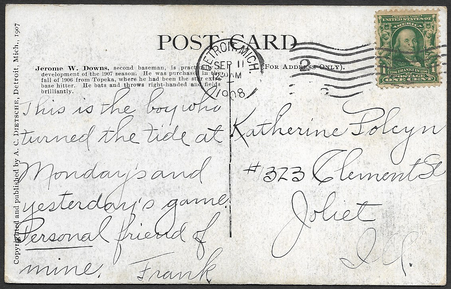 POST CARD
Jerome W. Downs, second baseman, is
development of the 1907 season. He was purchased in
fall of 1906 from Topeka, where he had been the star
base hitter. He bats and throws right-handed and fields
brilliantly.
(For Address Only).
DETROIT, MICH.
SEP 11
AM
1908
2
Copyrighted and published by A. C. DIETSCHE, Detroit, Mich., 1907
This is the boy who
turned the tide at
Monday's and
yesterday's game.
Personal friend of
mine. Frank
Katherine
#323 Clement St
Joliet
Ill.